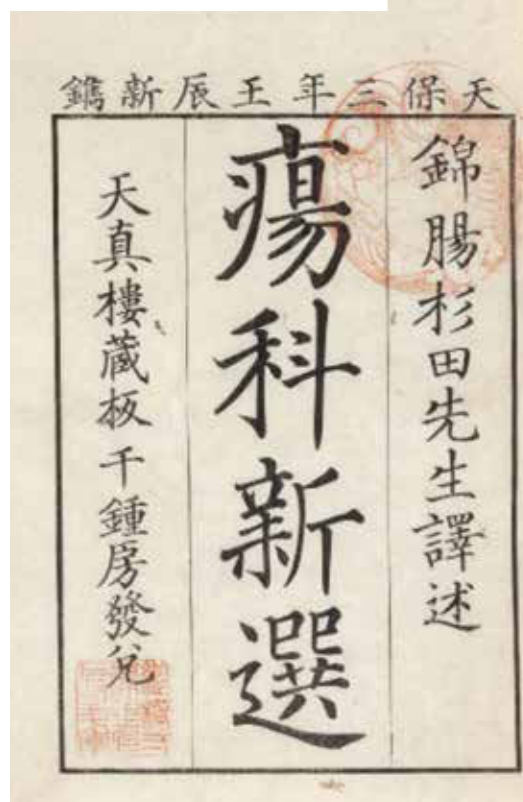 天保三年壬辰新鐫
錦腸杉田先生譯述
瘍科新選
天真樓蔵板 千鍾房發兌